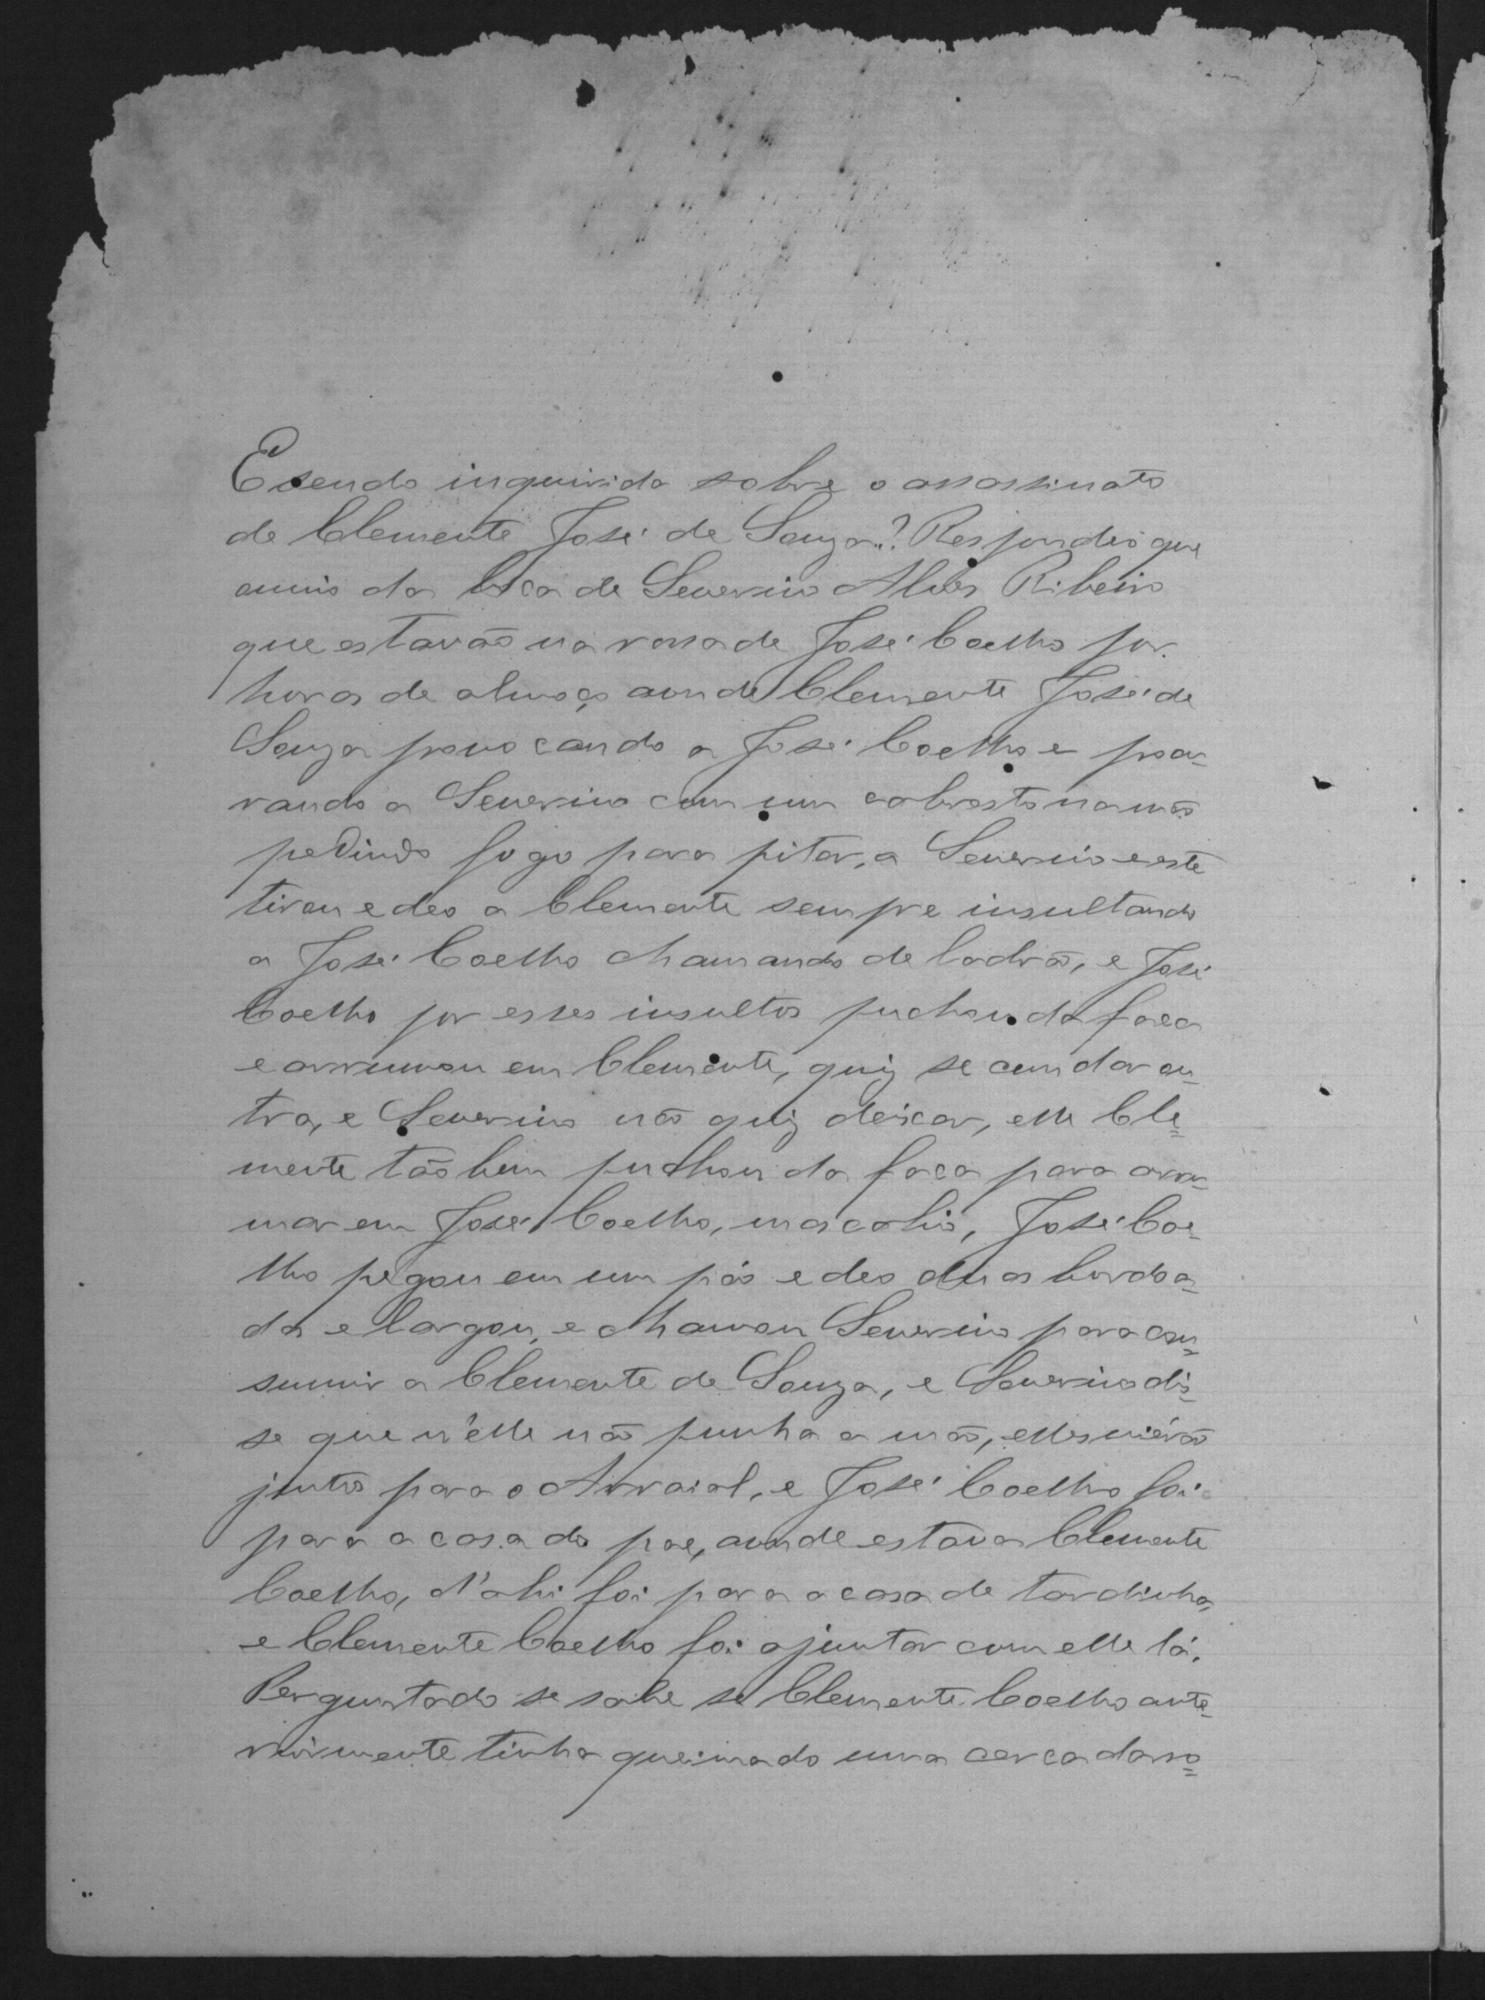 E sendo inquirido sobre o assassinato
de Clemente José de Souza..? Respondeo que
ouvio da boca de Severino Alves Ribeiro
que estavão na rossa de José Coelho por
horas de almoço aonde Clemente José de
Souza provocando a José Coelho e pro-
rando a Severino com um cabresto na mão
pedindo fogo para pitar, a Severino e este
tirou e deo a Clemente sempre insultando
a José Coelho chamando de ladrão, e José
Coelho por esses insultos puchou da faca
e arrumou em Clemente, quiz secundar ou-
tra, e Severino não quiz deixar, elle Cle=
mente tãobem puchou da faca para arru-
mar em José Coelho, mas cahio, José Coe-
lho pegou em um páo e deo duas bordoa-
da e largou, e chamou Severino para con=
sumir a Clemente de Souza, e Severino dis-
se que n'elle não punha a mão, elles vierão
juntos para o Arraial, e José Coelho foi
para a casa do pae, aonde estava Clemente
Coelho, d'ahi foi para a casa de tardinha,
e Clemente Coelho foi ajuntar com elle lá.
Perguntado se sabe se Clemente Coelho ante-
riormente tinha queimado uma cerca da ro=